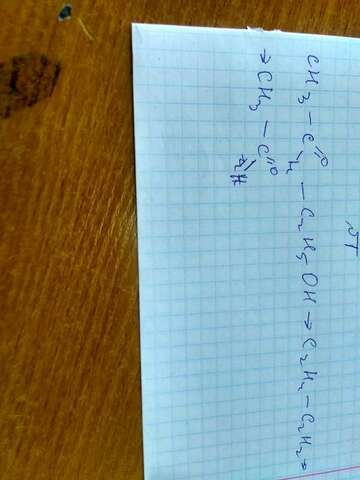 CH3 — C=O H — C2H5OH → C2H2 — C2H2 →
→ CH3 — C=O H